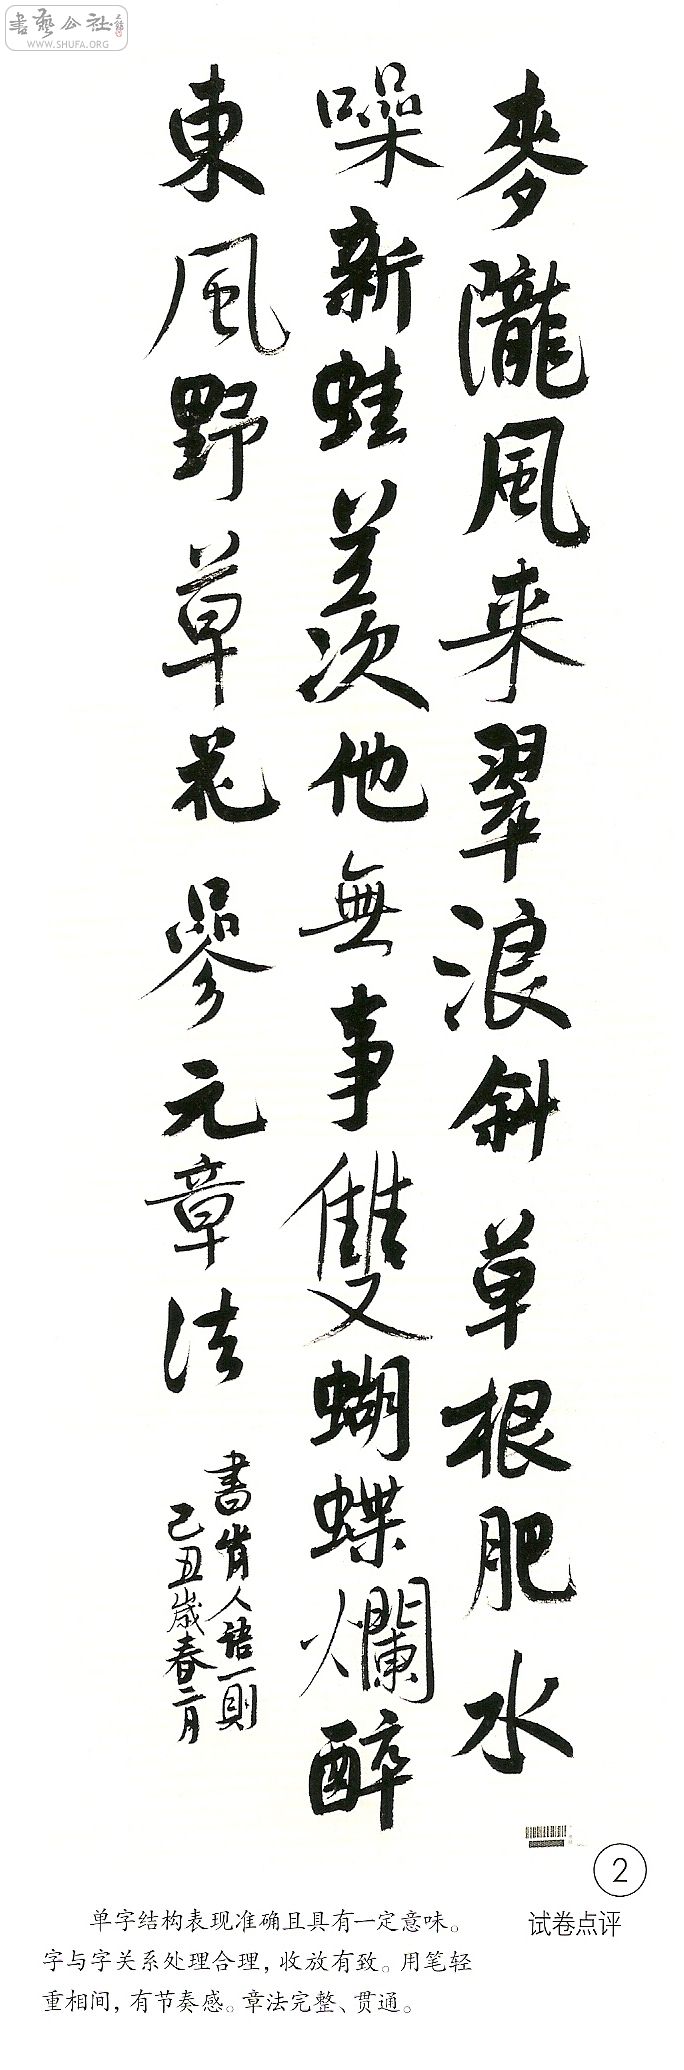 書藝公社
WWW.SHUFA.ORG
麥隴風来翠浪斜草根肥水
噪新蛙羨他無事雙蝴蝶爛醉
東風野草花 參元章法
書前人語一則
己丑歲春二月
2
试卷点评
单字结构表现准确且具有一定意味。
字与字关系处理合理，收放有致。用笔轻
重相间，有节奏感。章法完整、贯通。